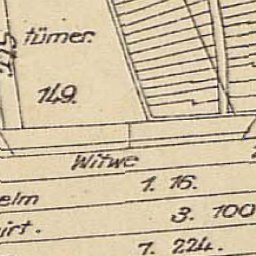 tümer.
149.
Witwe
elm 1. 16.
irt. 3. 100
7. 224.